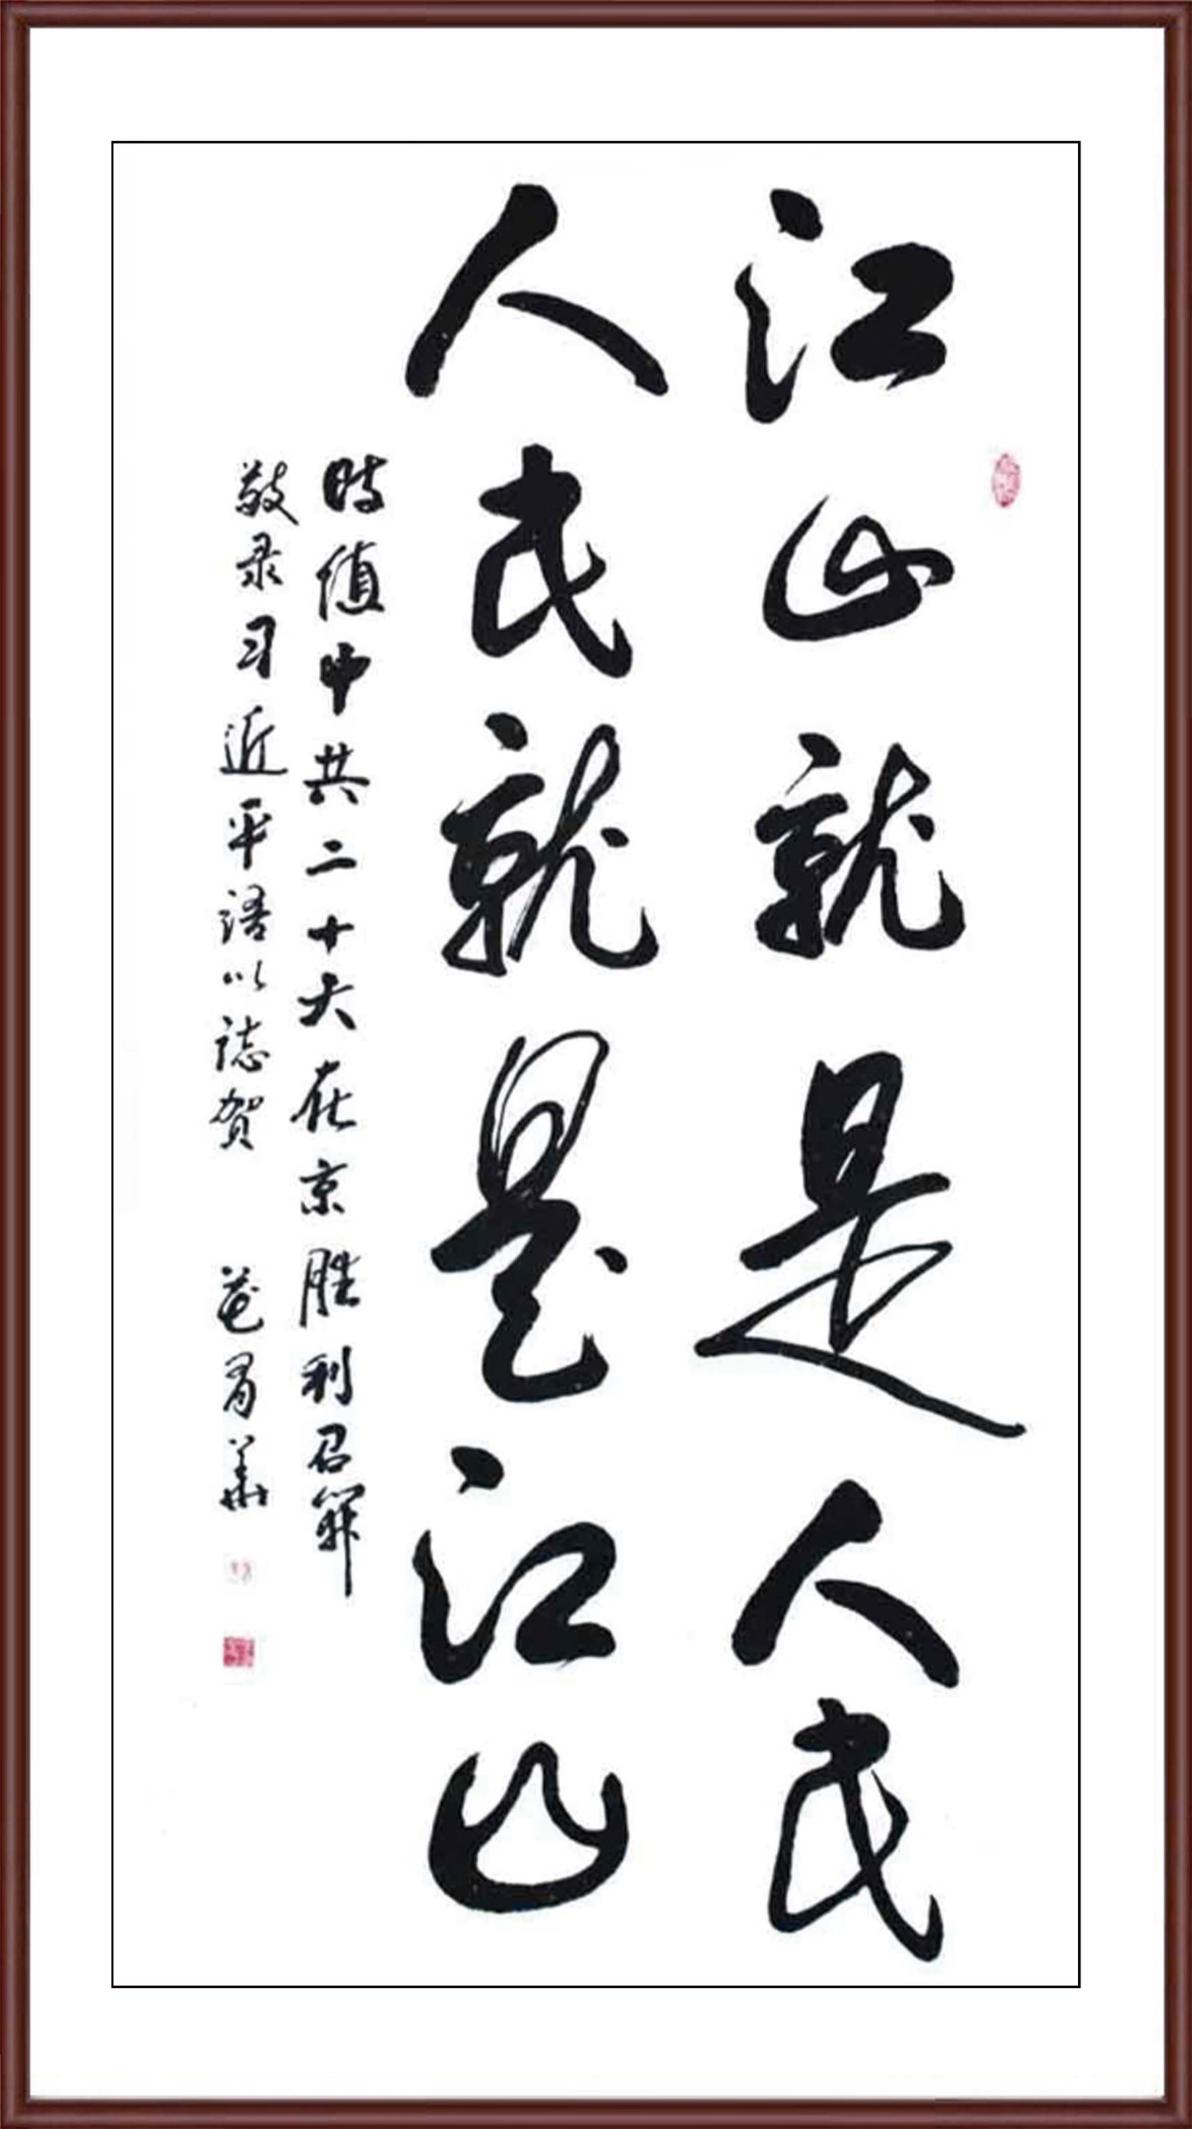 江山就是人民
人民就是江山
时值中共二十大在京胜利召開
敬录习近平语以誌贺